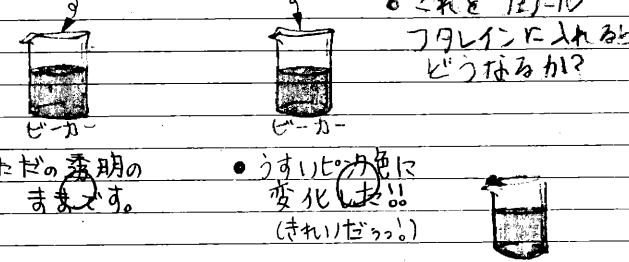 これを フェノール
フタレインに入れると
どうなるか?
ビーカー
ビーカー
ただの透明の
ままです。
● うすいピンク色に
変化した!!
(きれいだっっ!)